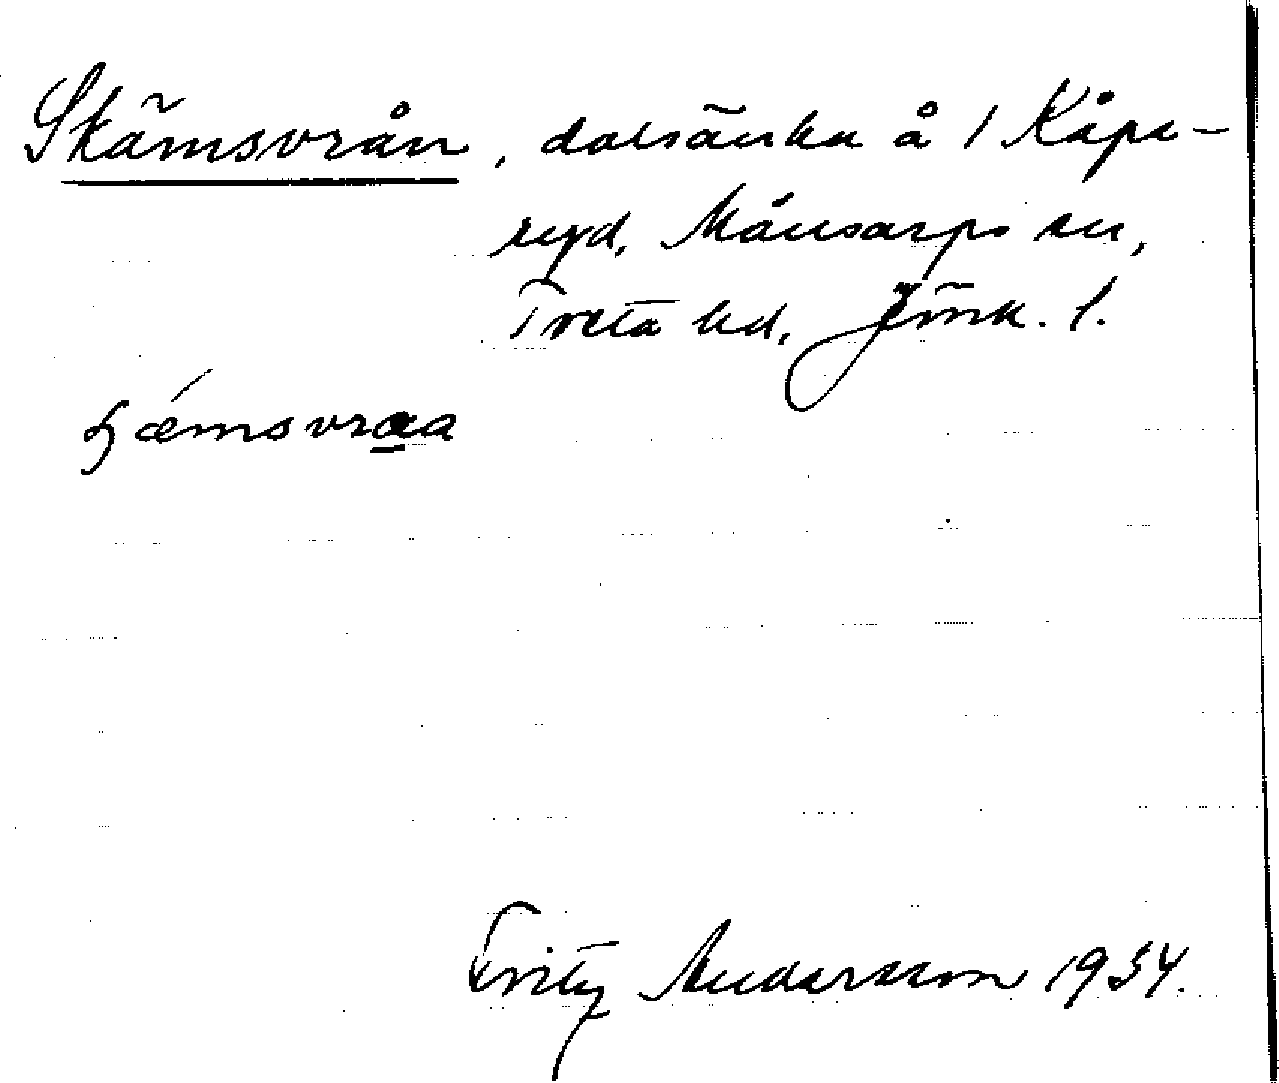 Skämsvrån, dalsänka å 1 Kåpe-
ryd, Månsarps sn,
Tveta hd, Jönk. l.
ɧǽmsvraa
Fritz Andersson 1934.